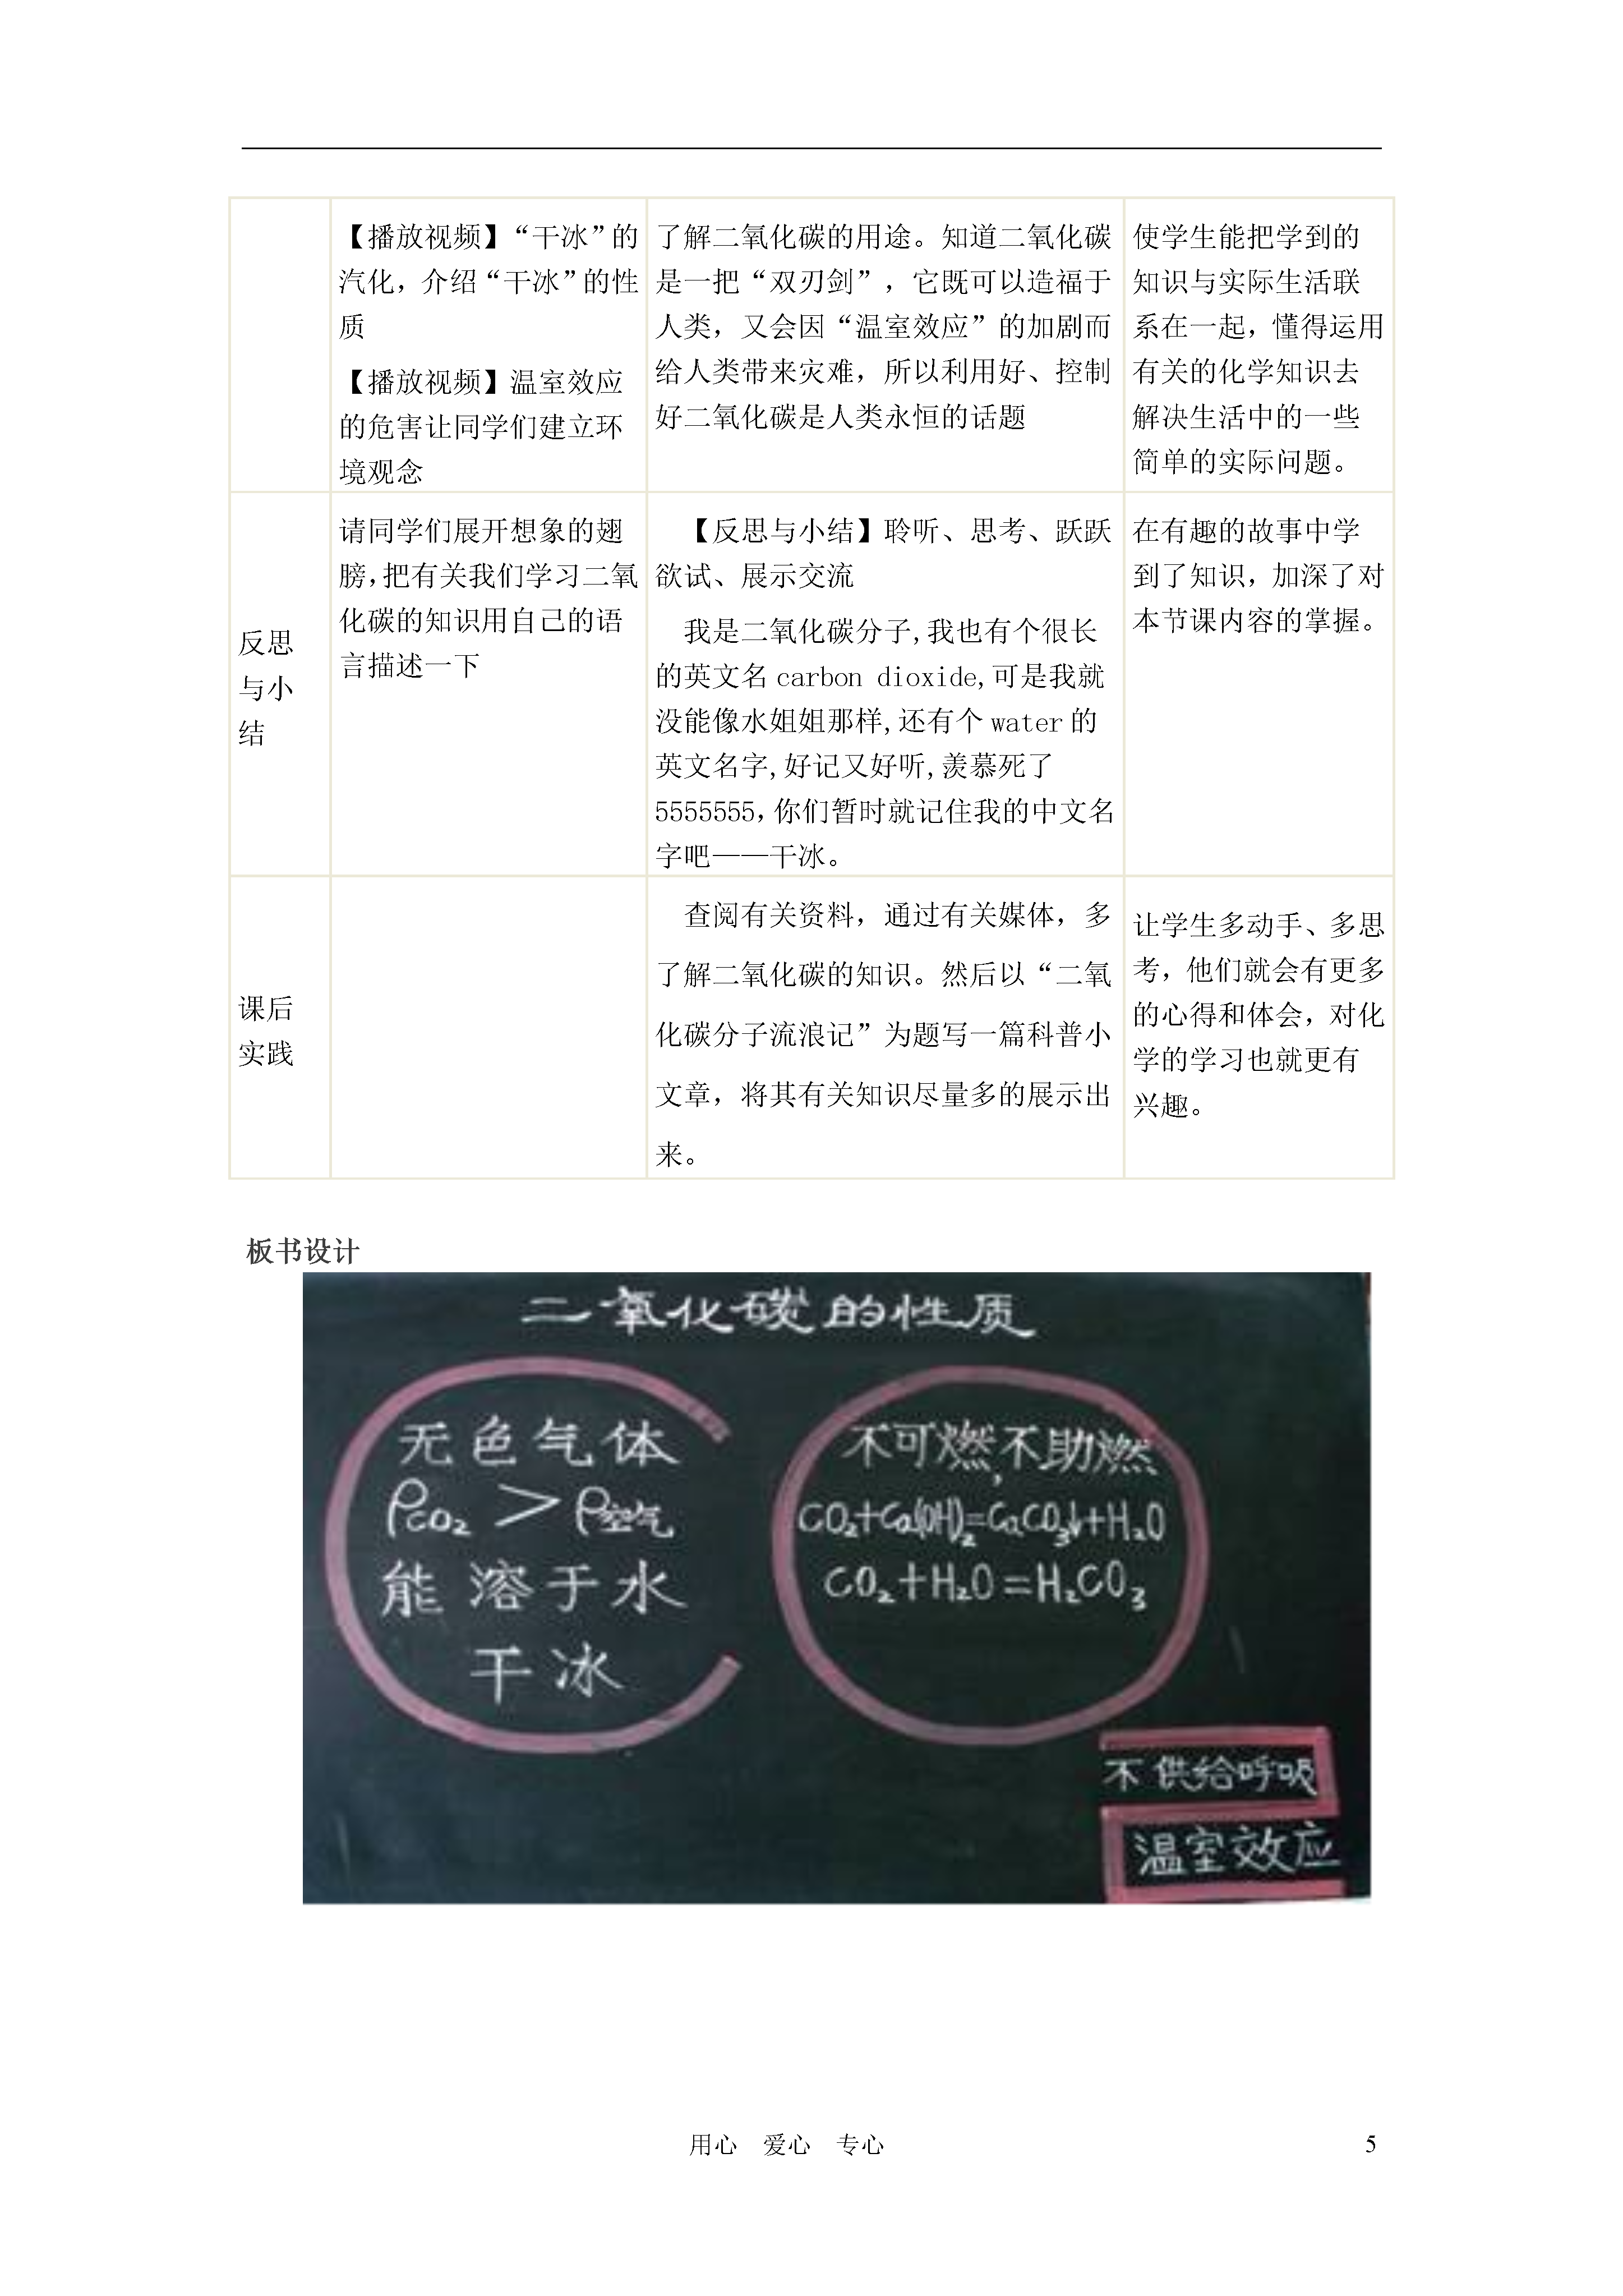 【播放视频】“干冰”的
汽化，介绍“干冰”的性
质
【播放视频】温室效应
的危害让同学们建立环
境观念
了解二氧化碳的用途。知道二氧化碳
是一把“双刃剑”，它既可以造福于
人类，又会因“温室效应”的加剧而
给人类带来灾难，所以利用好、控制
好二氧化碳是人类永恒的话题
使学生能把学到的
知识与实际生活联
系在一起，懂得运用
有关的化学知识去
解决生活中的一些
简单的实际问题。
反思
与小
结
请同学们展开想象的翅
膀,把有关我们学习二氧
化碳的知识用自己的语
言描述一下
【反思与小结】聆听、思考、跃跃
欲试、展示交流
我是二氧化碳分子,我也有个很长
的英文名 carbon dioxide,可是我就
没能像水姐姐那样,还有个 water 的
英文名字,好记又好听,羡慕死了
5555555,你们暂时就记住我的中文名
字吧——干冰。
在有趣的故事中学
到了知识，加深了对
本节课内容的掌握。
课后
实践
查阅有关资料，通过有关媒体，多
了解二氧化碳的知识。然后以“二氧
化碳分子流浪记”为题写一篇科普小
文章，将其有关知识尽量多的展示出
来。
让学生多动手、多思
考，他们就会有更多
的心得和体会，对化
学的学习也就更有
兴趣。
板书设计
二氧化碳的性质
无色气体
ρCO₂ > ρ空气
能溶于水
干冰
不可燃,不助燃
CO₂+Ca(OH)₂=CaCO₃↓+H₂O
CO₂+H₂O=H₂CO₃
不供给呼吸
温室效应
用心 爱心 专心
5